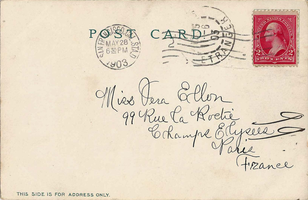 POST CARD
MAY 28
6 PM
ETRANGER
Miss Vera Ellon
99 Rue La Boëtie
Champs Elysees
Paris
France
THIS SIDE IS FOR ADDRESS ONLY.